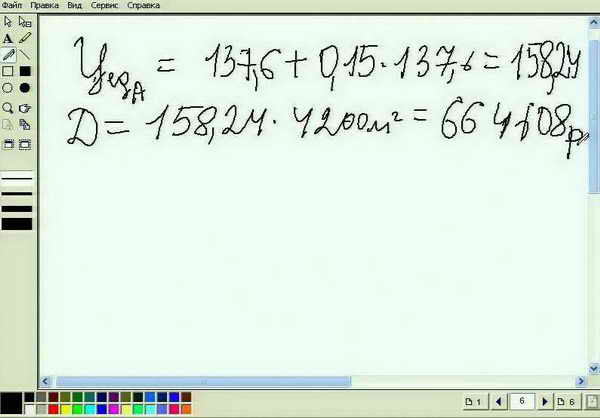 Файл Правка Вид Сервис Справка
Ц ед А = 137,6 + 0,15 · 137,6 = 158,24
D = 158,24 · 4200м² = 664608р
A
1 6 6